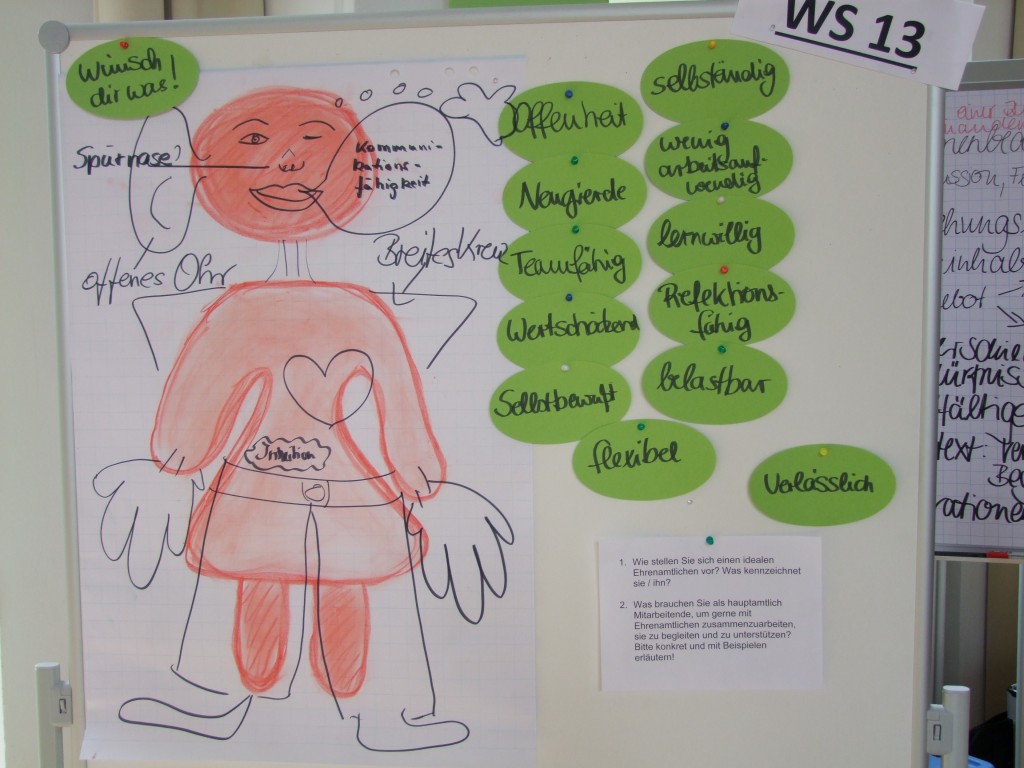 WS 13
Wünsch
dir was!
Spürnase?
offenes Ohr
Kommuni-
kations-
fähigkeit
Breites Kreuz
Intuition
Offenheit
Neugierde
Teamfähig
Wertschätzend
Selbstbewußt
flexibel
selbständig
wenig
arbeitsauf-
wendig
lernwillig
Refektions-
fähig
belastbar
Verlässlich
1. Wie stellen Sie sich einen idealen
Ehrenamtlichen vor? Was kennzeichnet
sie / ihn?
2. Was brauchen Sie als hauptamtlich
Mitarbeitende, um gerne mit
Ehrenamtlichen zusammenzuarbeiten,
sie zu begleiten und zu unterstützen?
Bitte konkret und mit Beispielen
erläutern!
einer